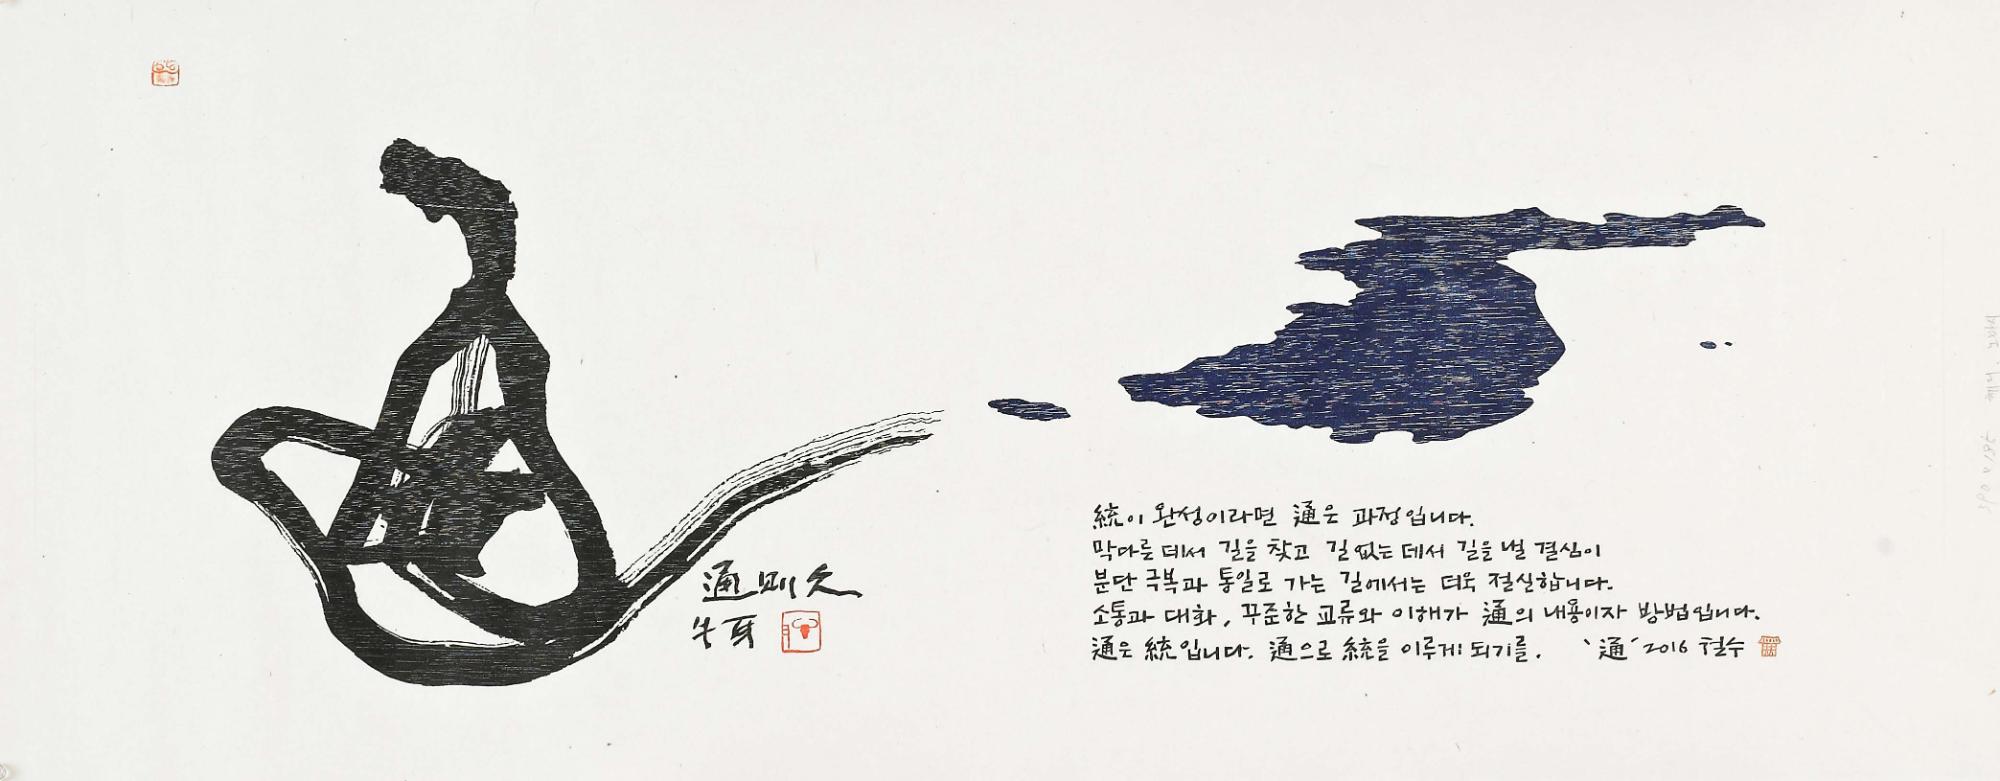 通則久
牛耳
統이 완성이라면 通은 과정입니다.
막다른 데서 길을 찾고 길 없는 데서 길을 낼 결심이
분단 극복과 통일로 가는 길에서는 더욱 절실합니다.
소통과 대화, 꾸준한 교류와 이해가 通의 내용이자 방법입니다.
通은 統입니다. 通으로 統을 이루게 되기를. '通' 2016 철수